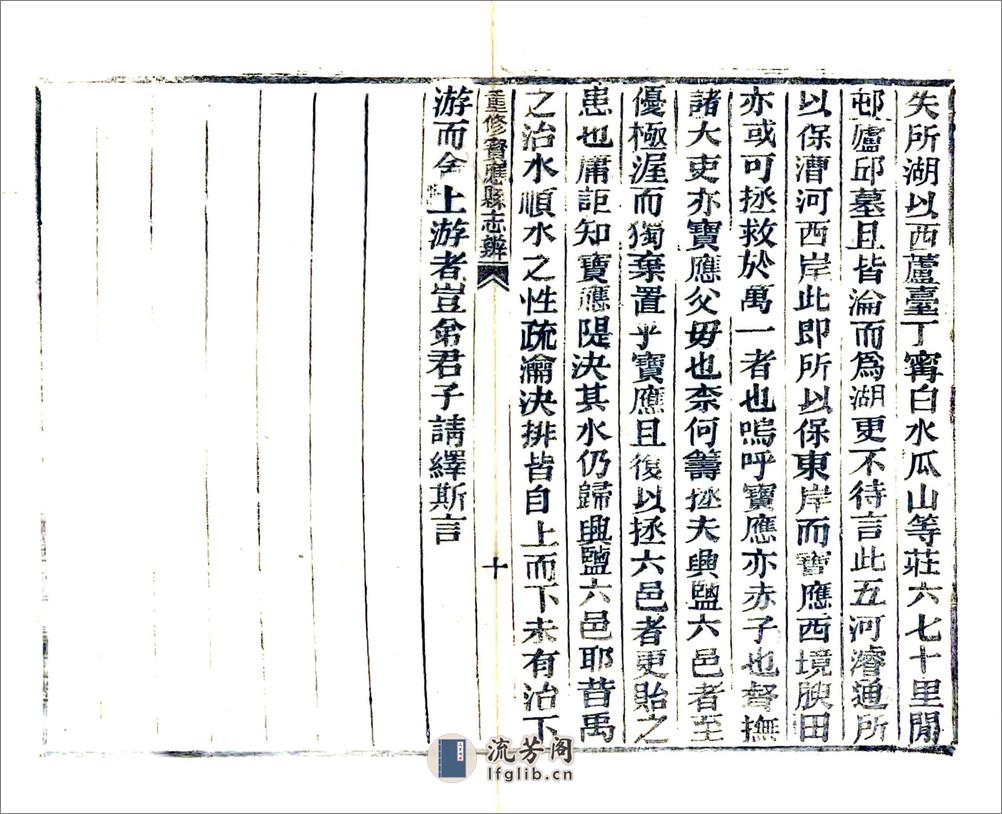 失所湖以西蘆臺丁甯白水瓜山等莊六七十里閒
邨廬邱墓且皆淪而爲湖更不待言此五河濬通所
以保漕河西岸此即所以保東岸而寶應西境腴田
亦或可拯救於萬一者也嗚呼寶應亦赤子也督撫
諸大吏亦寶應父毋也柰何籌拯夫興鹽六邑者至
優極渥而獨棄置乎寶應且復以拯六邑者更貽之
患也庸詎知寶應隄決其水仍歸興鹽六邑耶昔禹
之治水順水之性疏瀹決排皆自上而下未有治下
重修寶應縣志辨
十
游而舍上游者豈弟君子請繹斯言
流芳阁
lfglib.cn